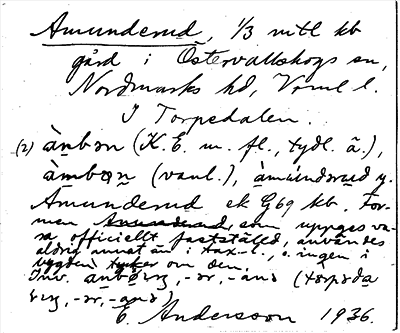 Åmunderud, 1/3 mtl kb
gård i Östervallskogs sn,
Nordmarks hd, Vrml l.
I Torpedalen.
(2) ànbon (K. E. m. fl., tydl. ã.),
àmbon (vanl.), àmúndrud y.
Åmunderud ek G69 kb. For-
men Åmunderud, som uppges va-
ra officiellt fastställd, användes
aldrig annat än i tax.-l., o. ingen i
bygden tycker om den.
Inv. -ar, -ans (
-ar, -ans)
E. Andersson 1936.